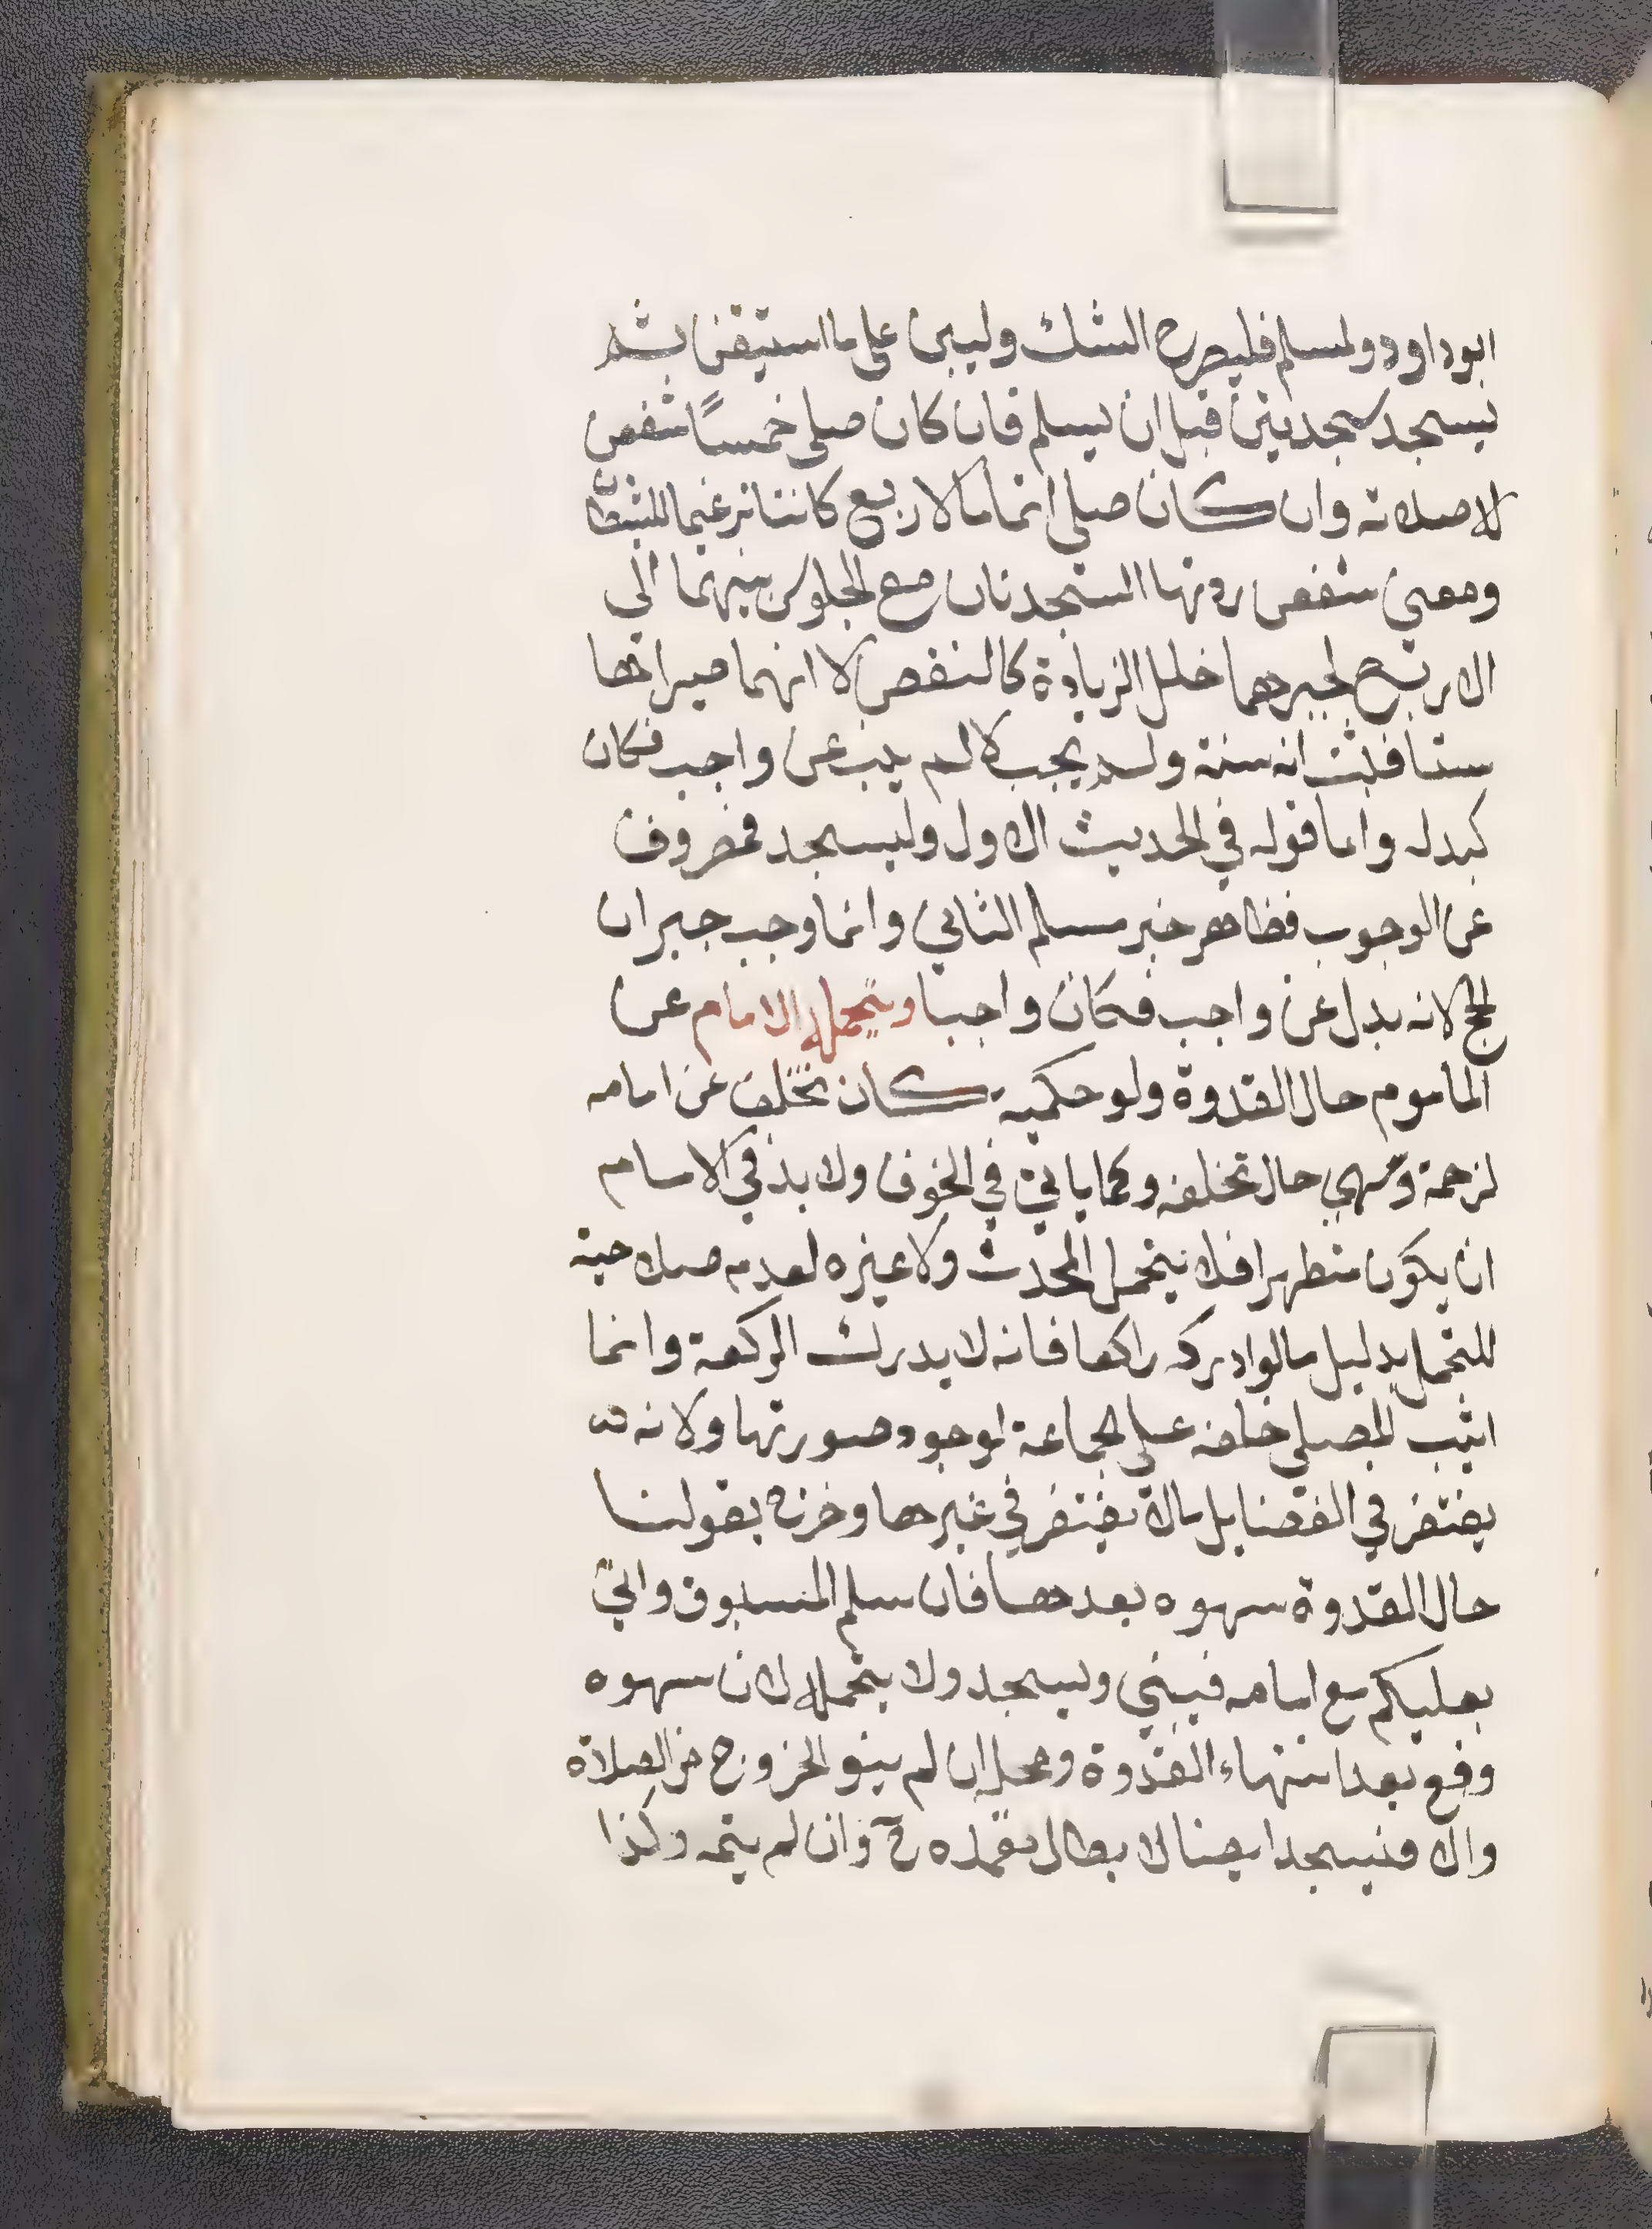 ابوداود ولمسلم فليصرح الشك وليبن على ما استيقن ثم
يسجد سجدتين قبل ان يسلم فان كان صلى خمسا شفعن
له صلاته وان كان صلى اتماما لاربع كانتا ترغيما للشيطان
ومعنى شفعن ردتها السجدتان مع الجلوس بينهما الى
الاربع لجبرهما خلل الزيادة كالنقص لا انهما صيراها
ستا فثبت انه سنة ولم يجب لانه لم ينب عن واجب فكان
كبدله واما قوله في الحديث الاول وليسجد فمصروف
عن الوجوب فظاهر خبر مسلم الثاني وانما وجب جبران
الحج لانه بدل عن واجب فكان واجبا ويتحمل الامام عن
الماموم حال القدوة ولو حكمية كان تخلف عن امامه
لزحمة وسهي حال تخلفه وكما ياتي في الخوف ولا بد في الامام
ان يكون متطهرا فلا يتحمل المحدث ولا غيره لعدم صلاحيته
للتحمل بدليل ما لو ادركه راكعا فانه لا يدرك الركعة وانما
اثيب المصلي خلفه على الجماعة لوجود صورتها ولانه
يغتفر في الفضايل ما لا يغتفر في غيرها وخرج بقولنا
حال القدوة سهوه بعدها فان سلم المسبوق واتى
بعليكم مع امامه فيبني ويسجد ولا يتحمل لان سهوه
وقع بعد انتهاء القدوة ومحله ان لم ينو الخروج من الصلاة
والا فيسجد ايضا لابطال تعمده ح وان لم يتمه وكذا